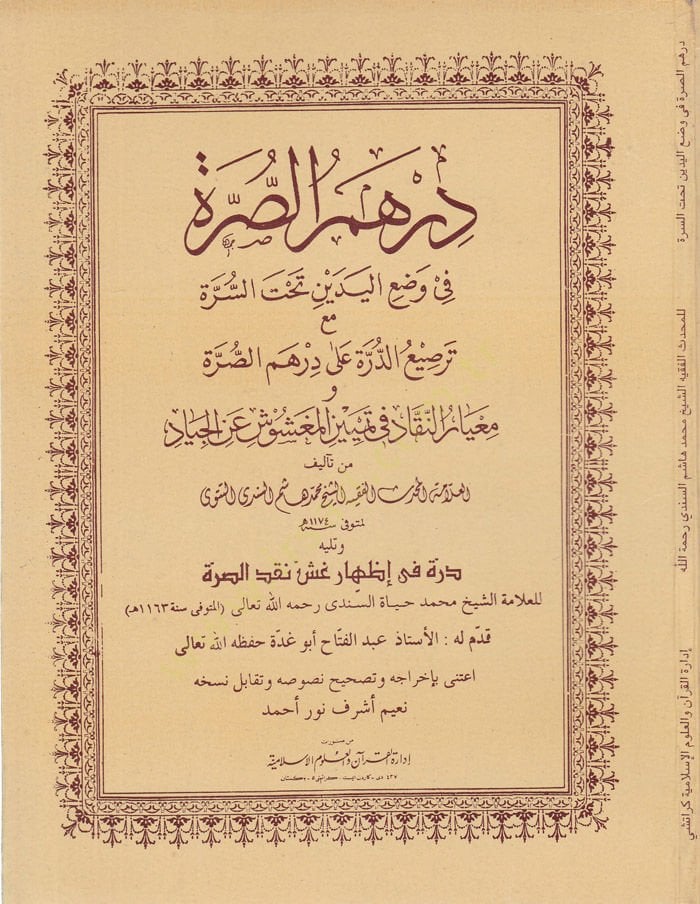 دِرْهَمُ الصُّرَّة
فِيْ وَضْعِ الْيَدَيْنِ تَحْتَ السُّرَّة
مع
تَرْصِيْعُ الدُّرَّة عَلىٰ دِرْهَمِ الصُّرَّة
و
مِعْيَارُ النُّقَّاد فِي تَمْيِيْزِ الْمَغْشُوْشِ عَنِ الْجِيَاد
من تأليف
العلامة المحدث الفقيه الشيخ محمد هاشم السندي التتوي
لمتوفى سنة ١١٧٤ھ
وتليه
درة في إظهار غش نقد الصرة
للعلامة الشيخ محمد حياة السندي رحمه الله تعالى (المتوفى سنة ١١٦٣هـ)
قدّم له : الأستاذ عبد الفتاح أبو غدة حفظه الله تعالى
اعتنى بإخراجه وتصحيح نصوصه وتقابل نسخه
نعيم أشرف نور أحمد
من منشورات
إدارة القرآن والعلوم الإسلامية
٤٣٧ دى - كاردن ايست - كراتشى ٥ - باكستان
درهم الصرة في وضع اليدين تحت السرة
للمحدث الفقيه الشيخ محمد هاشم السندي رحمة الله
إدارة القرآن والعلوم الإسلامية كراتشي